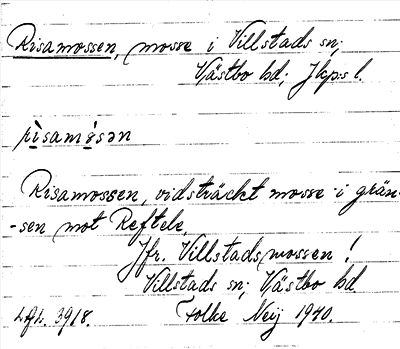 Risamossen, mosse i Villstads sn;
Västbo hd; Jkps l.
Risamossen, vidsträckt mosse i grän-
-sen mot Reftele.
Jfr. Villstadsmossen!
Villstads sn; Västbo hd.
3918. Folke Neij 1940.